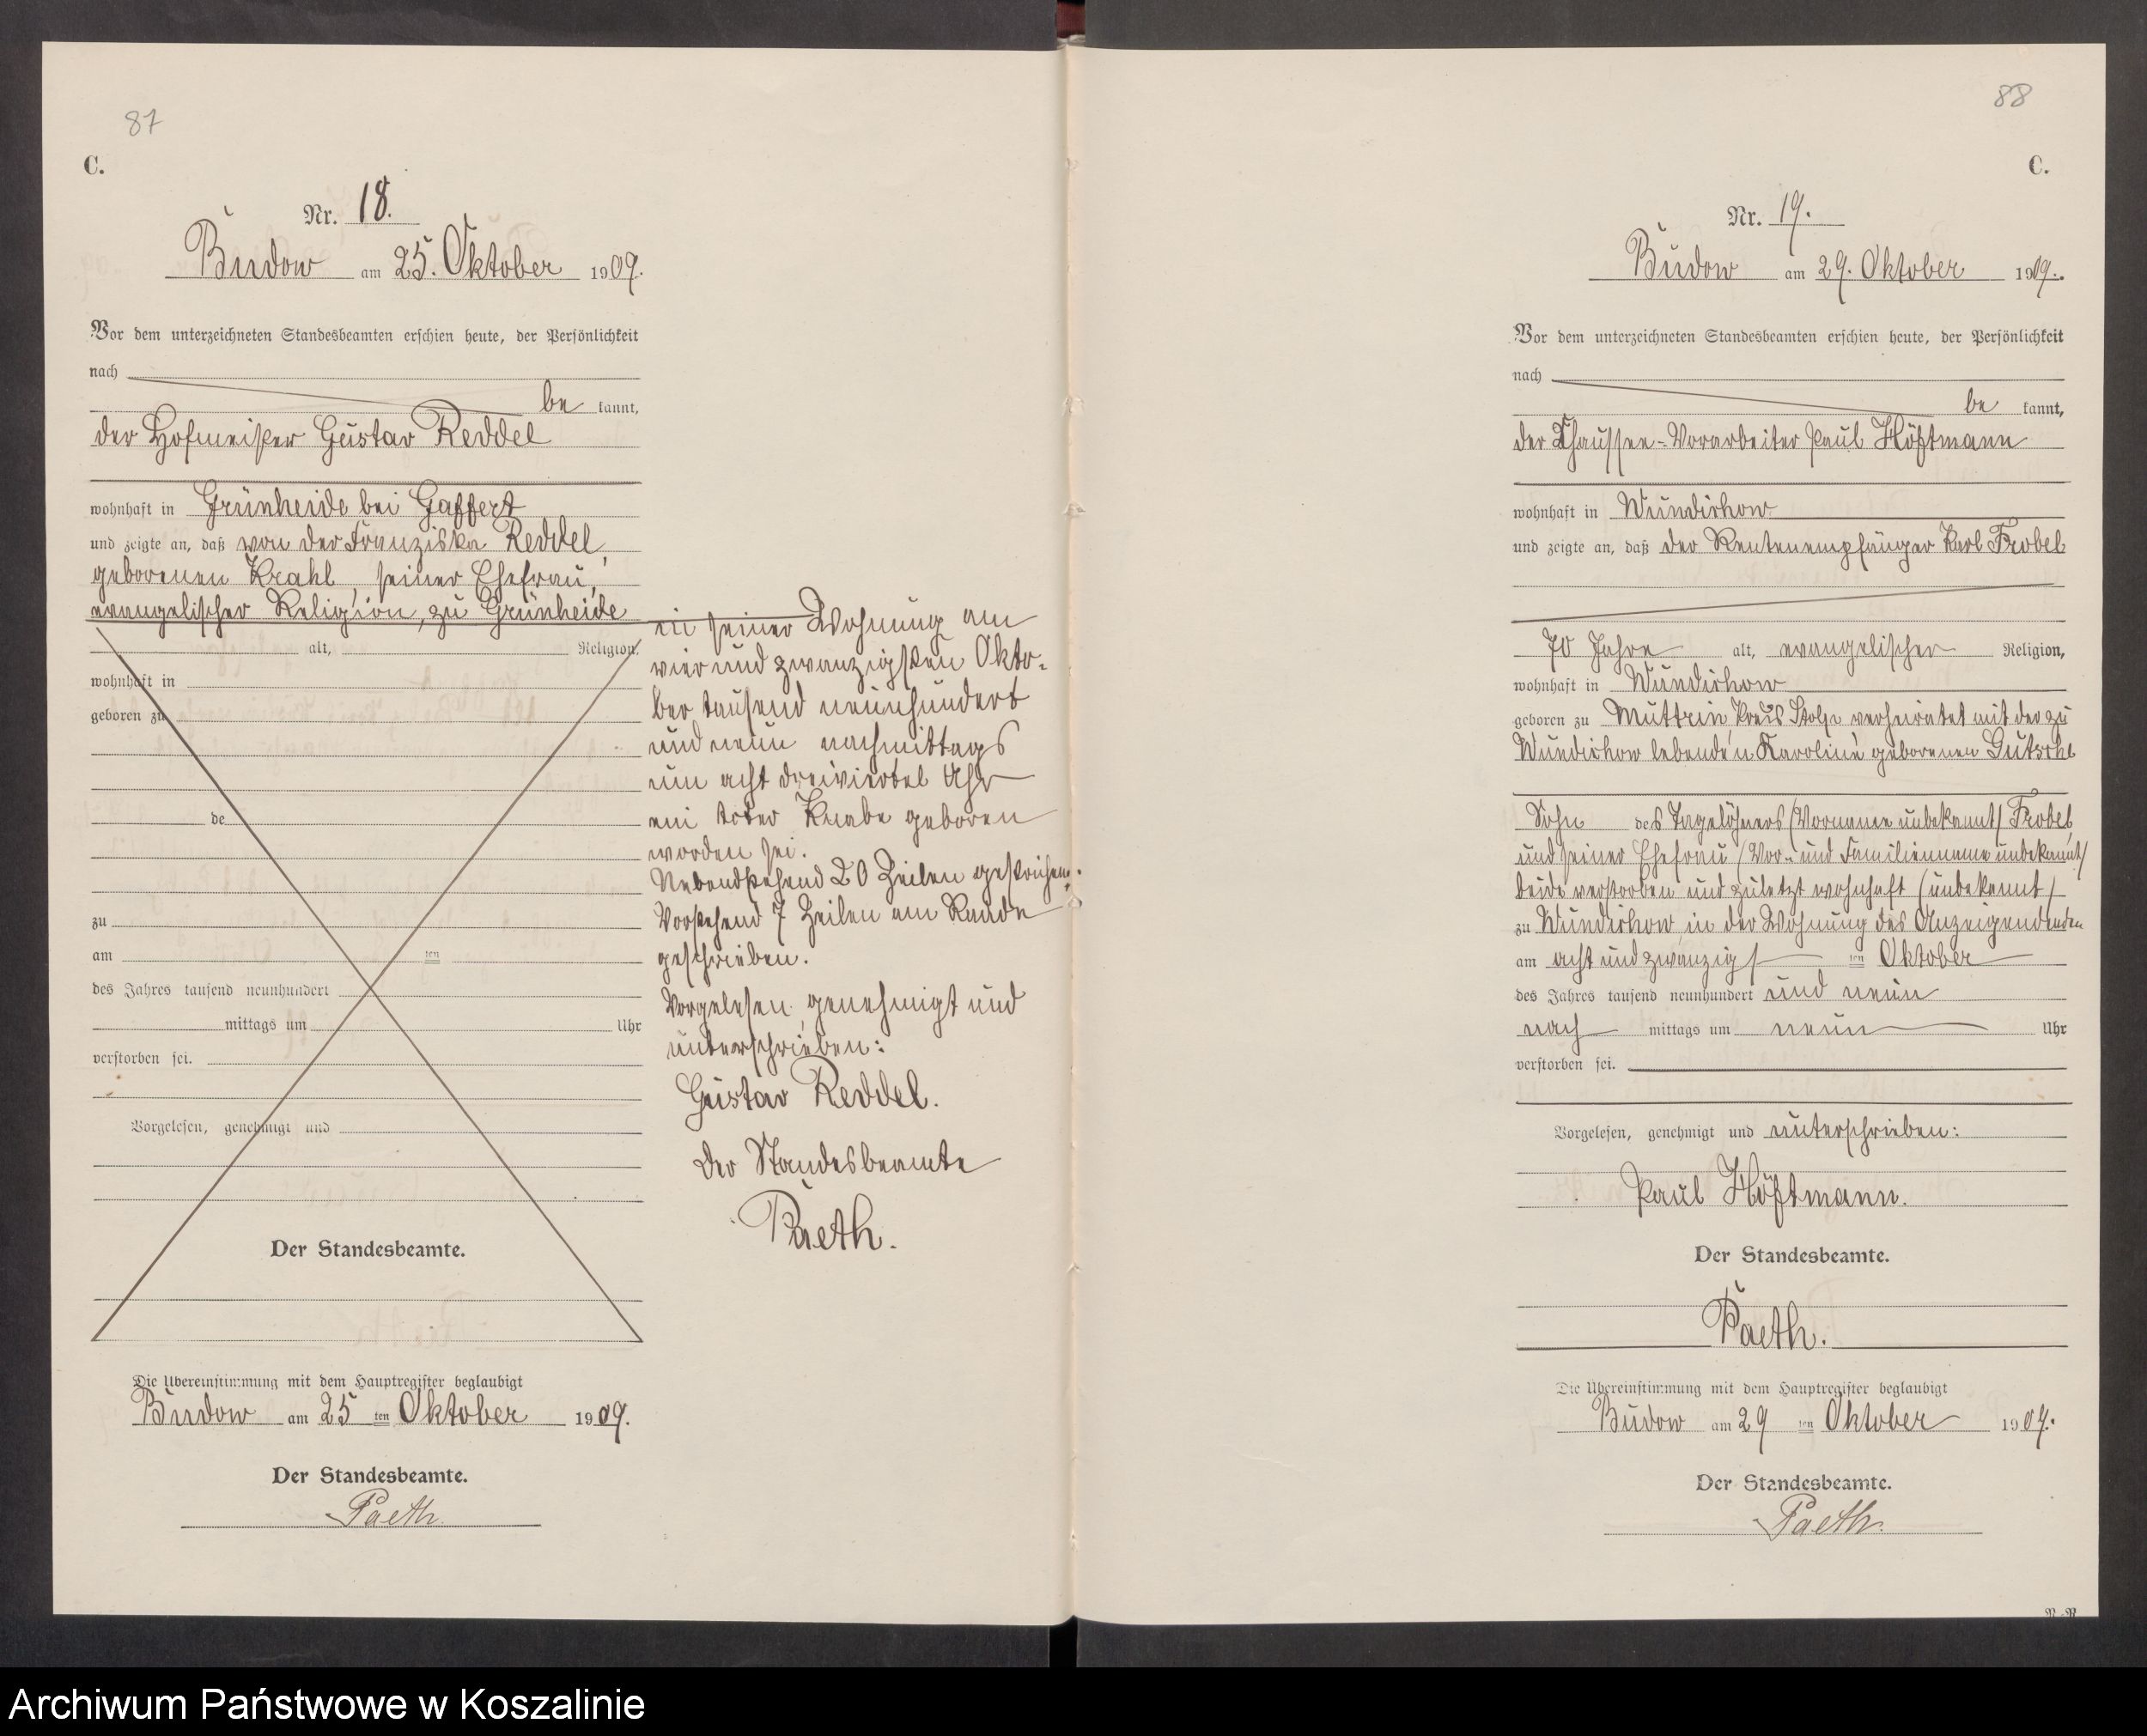 87
C.
Nr. 18.
Budow am 25. Oktober 1909.
Vor dem unterzeichneten Standesbeamten erschien heute, der Persönlichkeit
nach
be kannt,
der Hofmeister Gustav Reddel
wohnhaft in Grünheide bei Gaffert
und zeigte an, daß von der Franziska Reddel,
geborenen Krahl, seiner Ehefrau,
evangelischer Religion, zu Grünheide
alt, Religion,
wohnhaft in
geboren zu
de
zu
am ten
des Jahres tausend neunhundert
mittags um Uhr
verstorben sei.
Vorgelesen, genehmigt und
Der Standesbeamte.
Die Übereinstimmung mit dem Hauptregister beglaubigt
Budow am 25 ten Oktober 1909.
Der Standesbeamte.
Paeth.
in seiner Wohnung am
vierundzwanzigsten Okto-
ber tausend neunhundert
und neun nachmittags
um acht dreiviertel Uhr
ein toter Knabe geboren
worden sei.
Nebenstehend 20 Zeilen gestrichen.
Vorstehend 7 Zeilen am Rande
geschrieben.
Vorgelesen, genehmigt und
unterschrieben:
Gustav Reddel.
Der Standesbeamte
Paeth.
88
C.
Nr. 19.
Budow am 29. Oktober 1909.
Vor dem unterzeichneten Standesbeamten erschien heute, der Persönlichkeit
nach
be kannt,
der Chaussee-Vorarbeiter Paul Höftmann
wohnhaft in Wundichow
und zeigte an, daß der Rentenempfänger Karl Frobel
70 Jahre alt, evangelischer Religion,
wohnhaft in Wundichow
geboren zu Muttrin Kreis Stolp verheiratet mit der zu
Wundichow lebenden Karoline geborenen
Sohn des Tagelöhners (Vorname unbekannt) Frobel,
und seiner Ehefrau (Vor- und Familienname unbekannt)
beide verstorben und zuletzt wohnhaft (unbekannt)
zu Wundichow, in der Wohnung des Anzeigenden
am acht und zwanzigs ten Oktober
des Jahres tausend neunhundert und neun
nach mittags um neun Uhr
verstorben sei.
Vorgelesen, genehmigt und unterschrieben:
Paul Höftmann.
Der Standesbeamte.
Paeth.
Die Übereinstimmung mit dem Hauptregister beglaubigt
Budow am 29 ten Oktober 1909.
Der Standesbeamte.
Paeth.
Archiwum Państwowe w Koszalinie